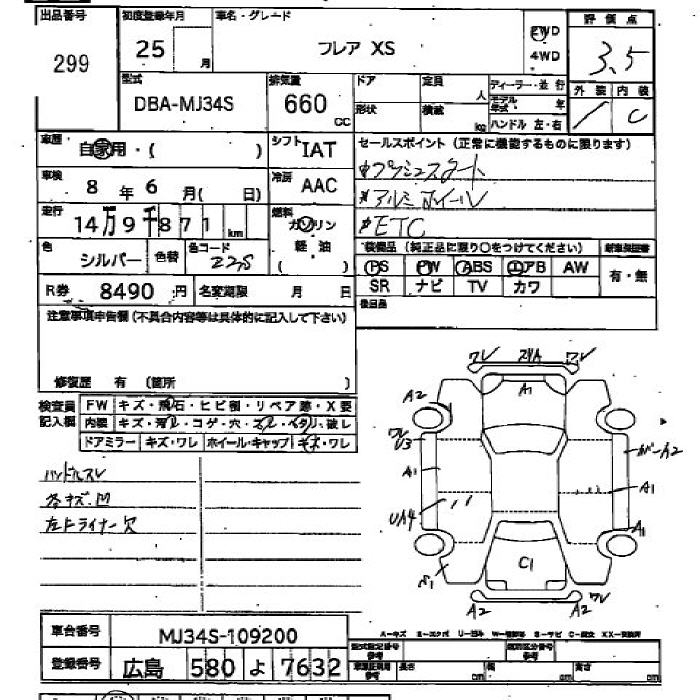 出品番号 初度登録年月 車名・グレード 評価点
299 25 月 フレア XS 2WD 4WD 3.5
型式 排気量 ドア 定員 人 ディーラー・並行 外装 内装
DBA-MJ34S 660 cc 形状 積載 kg モデル年式 年 ハンドル 左・右 C
車歴 自家用・( ) シフト IAT セールスポイント(正常に機能するものに限ります)
車検 8年6月( 日) 冷房 AAC プッシュスタート
アルミホイール
走行 14万9千871km 燃料 ガソリン 軽油 ( ) ETC
色 シルバー 色替 色コード Z2S 装備品(純正品に限り○をつけてください) 新車保証書
PS PW ABS エアB AW 有・無
R券 8490円 名変期限 月 日 SR ナビ TV カワ
注意事項申告欄(不具合内容等は具体的に記入して下さい) 後日品
修復歴 有 (箇所 )
検査員記入欄 FW キズ・飛石・ヒビ割・リペア跡・X要
内装 キズ・汚レ・コゲ・穴・スレ・ベタリ・破レ
ドアミラー キズ・ワレ ホイール・キャップ キズ・ワレ
ハンドルスレ
各キズ.凹
左ドライナー欠
ワレ ワレ
A2 A1
ワレ U3
A1 A1
UA4
A1
C1
A2 A2 ワレ
車台番号 MJ34S-109200
A-キズ E-エクボ U-凹み W-補修跡 S-サビ C-腐食 XX-交換済
登録番号 広島 580 よ 7632
型式指定番号 参考 類別区分番号 参考
長さ cm 幅 cm 高さ cm